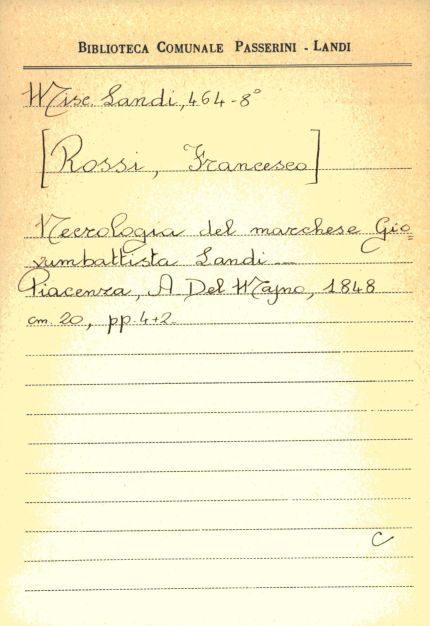 BIBLIOTECA COMUNALE PASSERINI - LANDI
Misc. Landi, 464-8°
[Rossi, Francesco]
Necrologia del marchese Gio=
vambattista Landi ...
Piacenza, A. Del Majno, 1848
cm. 20, pp. 4+2.
C